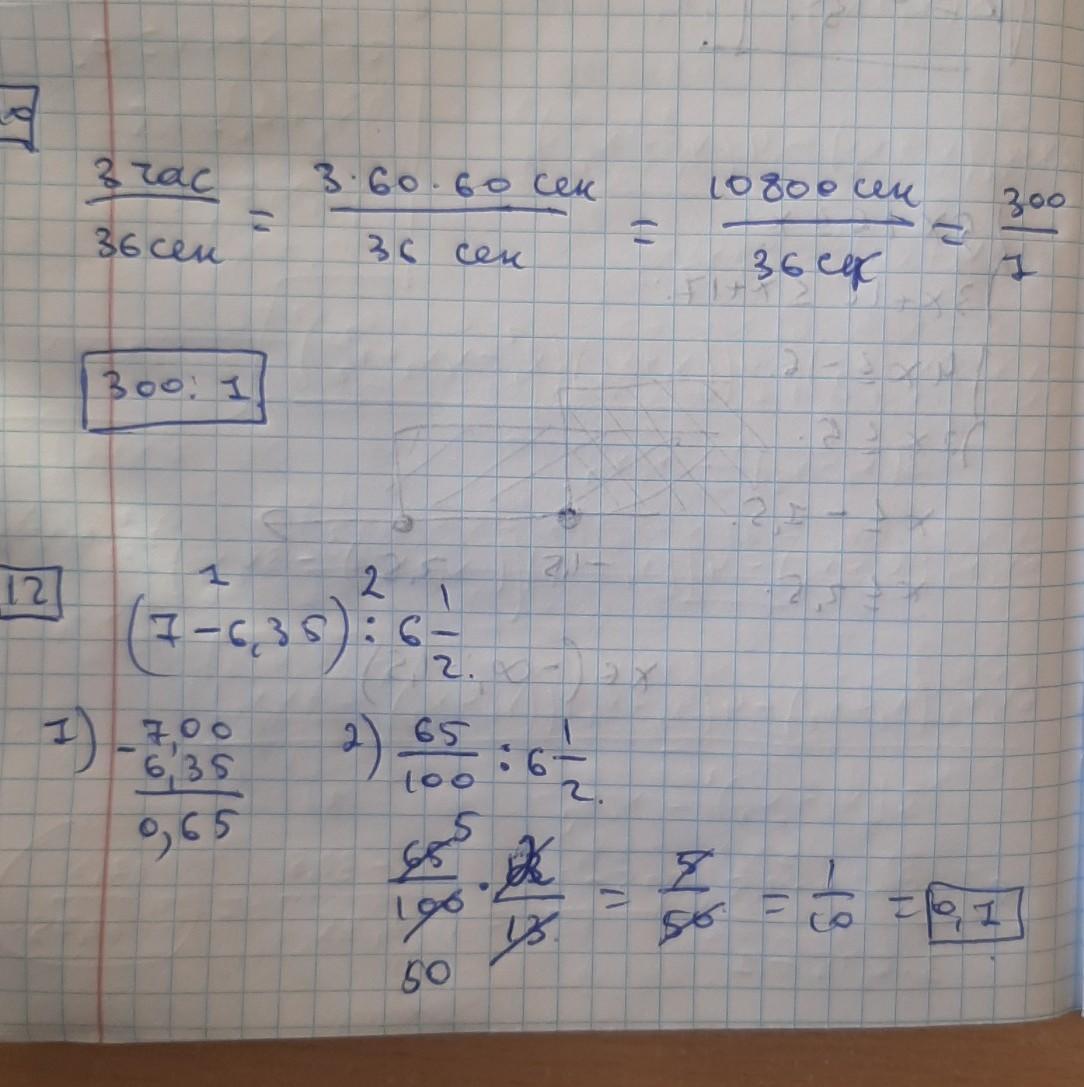 3 час / 36 сек = 3·60·60 сек / 36 сек = 10800 сек / 36 сек = 300 / 1
300 : 1
12
1 2
(7 – 6,35) : 6 1/2.
1) – 7,00 2) 65/100 : 6 1/2.
6,35
0,65
5
65/100 · 2/13 = 5/50 = 1/10 = 0,1
50